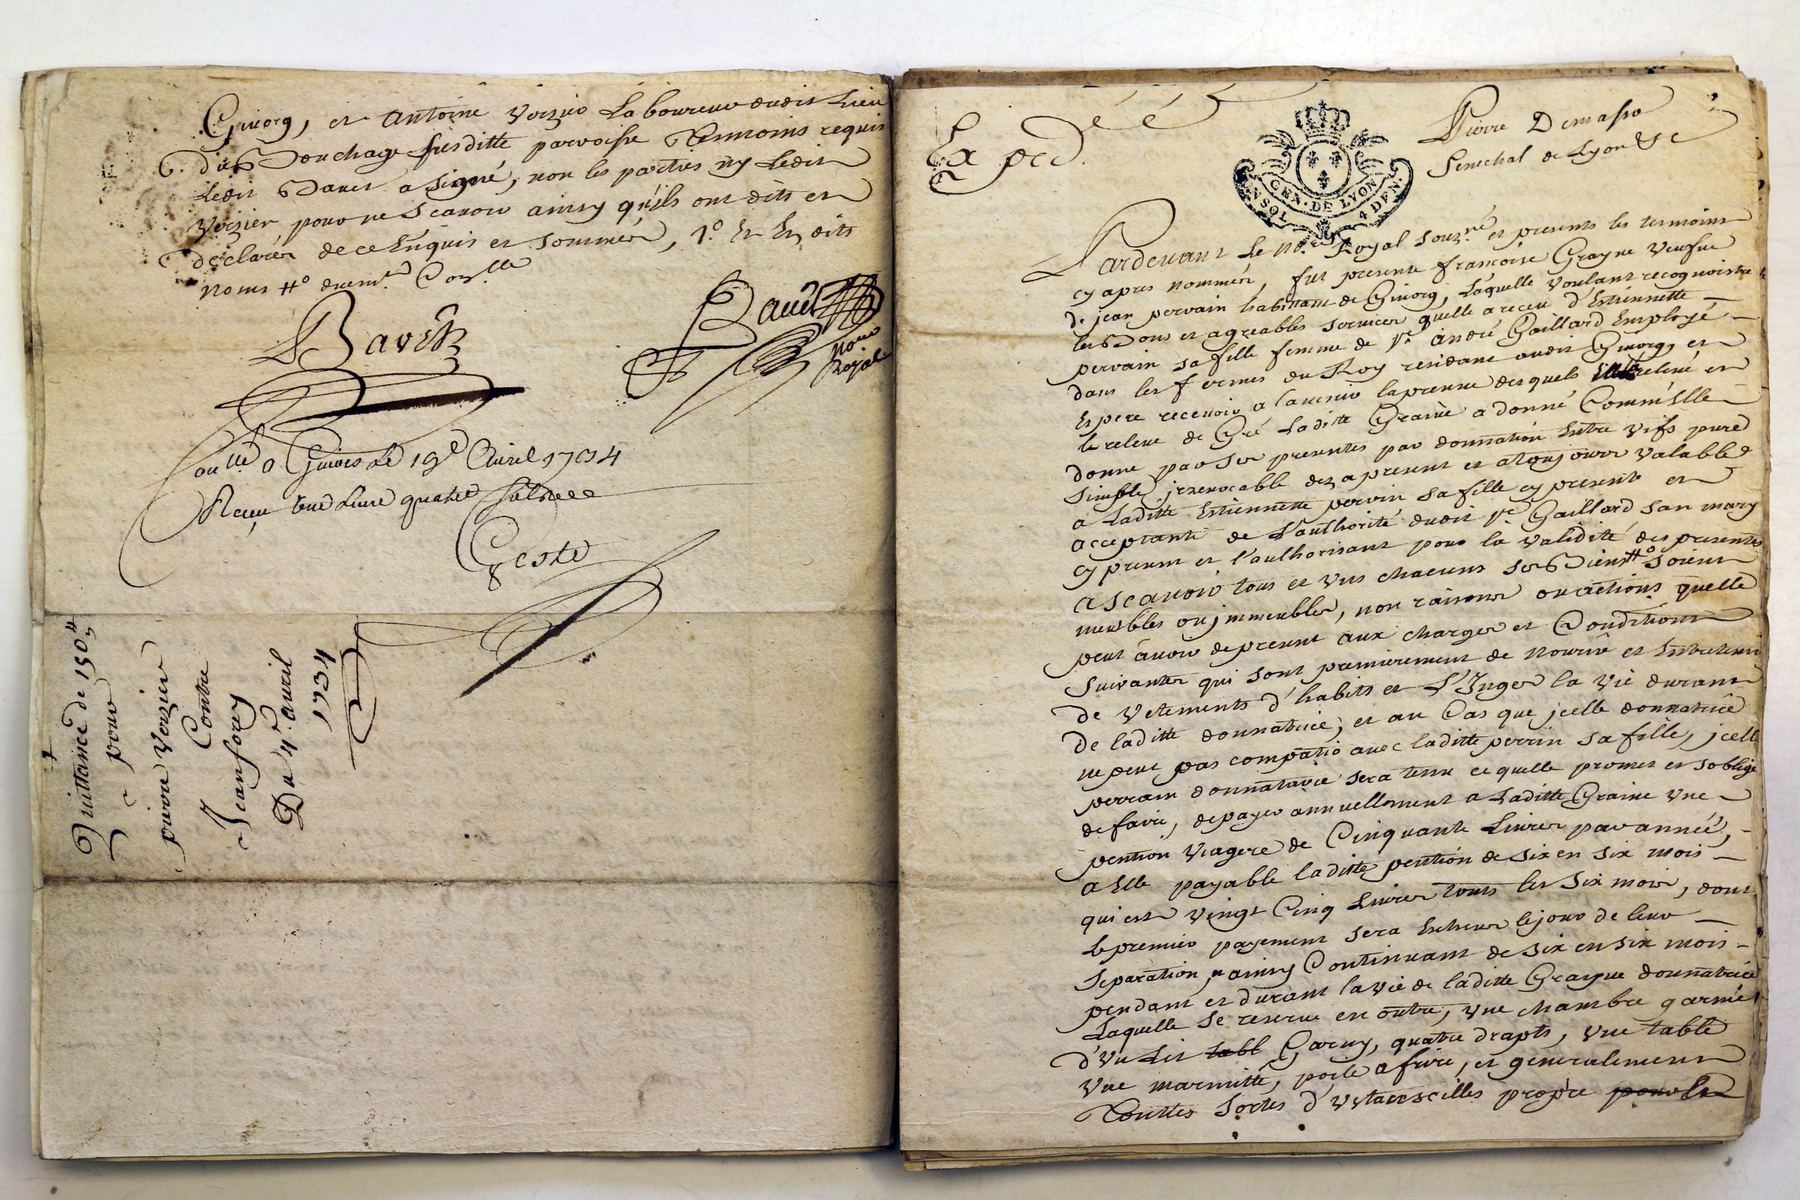 Givorg, et Antoine Verzier Laboureur dudit Lieu
du Bouchage susditte parroisse Temoins requis
Ledit Bavet a signé, non les parties ny Ledit
Verzier pour ne Scavoir ainsy qu'ils ont dits et
declarer de ce Enquis et sommés,
noms
Bavet
Baud
Notre
Royal
Conllé a Givors Le 19e Avril 1734
Receu une Livre quatre sols
Geste
Quittance de 150#
pour
pierre Verzier
Contre
Jean forey
Du 4e avril
1734
Exped.
Pierre Demasso
Senechal de Lyon &c
GEN. DE LYON
UN SOL 4 DEN.
Pardevant Le Nre Royal souzné et presents les temoins
cy apres nommés, fut presente francoise Grayne veufve
de jean pervain habitant de Givorg, Laquelle voulant recognoistre
les Bons et agreables services quelle a receu d'Estiennette
pervain sa fille femme de Sr André Gaillard Employé
dans les fermes du Roy residant audit Givorg, et
Espere recevoir a l'avenir la preuve desquels relevé et
le releve de Gré Laditte Graine a donné Comm'Elle
donne par ses presentes par donnation Entre vifs pure
simple jrrevocable dez a present et a toujours valable
a Laditte Estiennette pervin sa fille cy presente et
acceptante de L'authorité dudit Sr Gaillard son mary
cy present et l'authorisant pour la validité des presentes
a scavoir tous et uns chacuns ses Biens # soient
meubles ou jmmeubles, non raisons ou actions quelle
peut avoir de present aux charges et Conditions
suivantes qui sont premierement de nourir et Entretenir
de vetements d'habits et L'Inges la vie durant
de laditte donnatrice, et au Cas que jcelle donnatrice
ne peut pas compatir avec laditte perrin sa fille, jcelle
perrain donnatarie sera tenu ce quelle promet et soblige
de faire, de payer annuellement a Laditte Graine une
pention viagere de Cinquante Livres par année,
a Elle payable laditte pention de six en six mois
qui est vingt Cinq Livres touts les six mois, dont
le premier payement sera Entrera le jour de leur
separation, ainsy Continuant de six en six mois
pendant et durant la vie de laditte Grayne donnatrice
Laquelle se reserve en outre, une chambre garnie
d'un Lit tabl Garny, quatre drapts, une table
une marmitte, poile a frire, et generalement
Touttes sortes d'ustancilles propre pour la